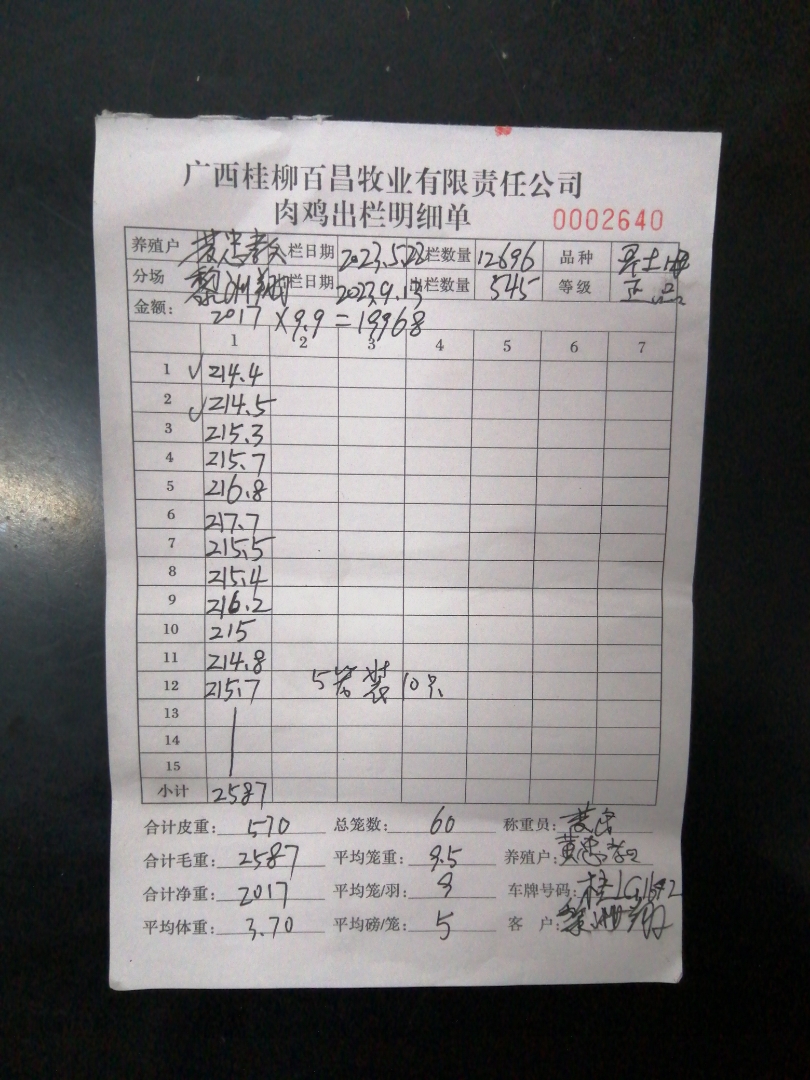 广西桂柳百昌牧业有限责任公司
肉鸡出栏明细单 0002640
养殖户 栏日期 2023.5.28 栏数量 12696 品种
分场 黎洲 栏日期 2023.9.13 出栏数量 545 等级 正品
金额: 2017×9.9=19968
1 2 3 4 5 6 7
1 ✓ 214.4
2 ✓ 214.5
3 215.3
4 215.7
5 216.8
6 217.7
7 215.5
8 215.4
9 216.2
10 215
11 214.8
12 215.7 5笼装10只
13
14
15
小计 2587
合计皮重: 570 总笼数: 60 称重员:
合计毛重: 2587 平均笼重: 9.5 养殖户: 黄忠
合计净重: 2017 平均笼/羽: 9 车牌号码:
平均体重: 3.70 平均磅/笼: 5 客户: 黎洲